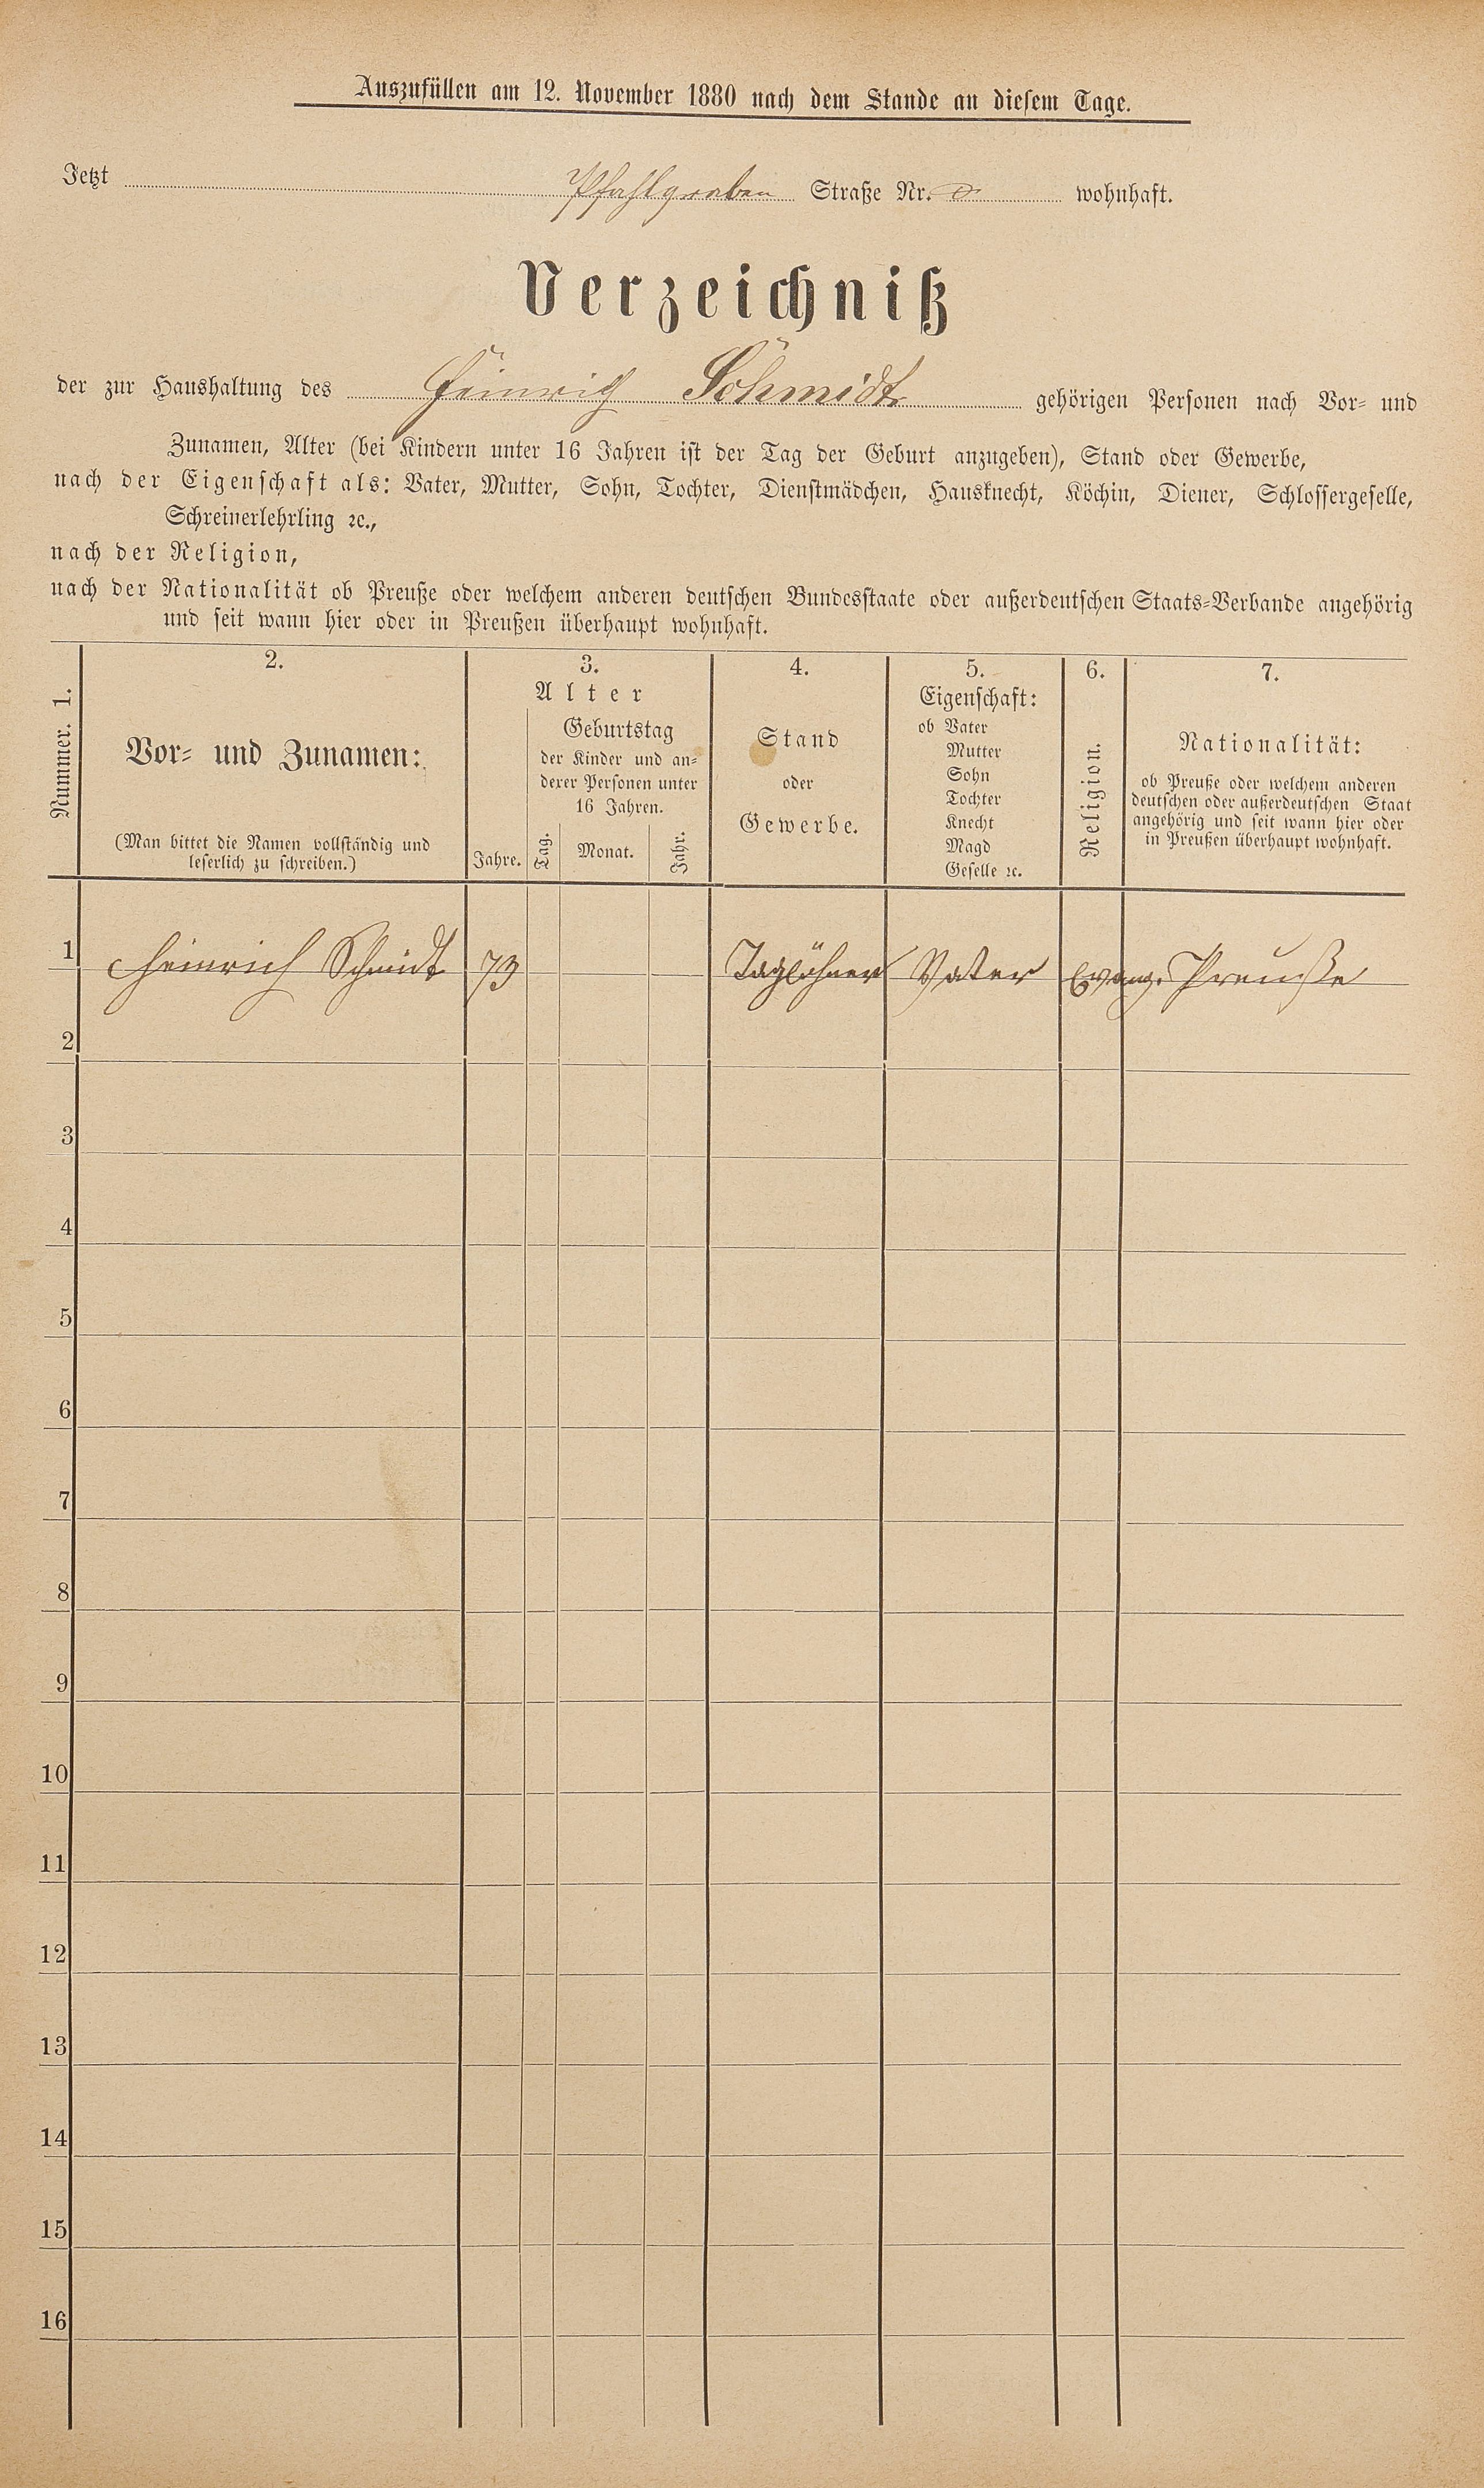 Auszufüllen am 12. November 1880 nach dem Stande an diesem Tage.
Jetzt Pfahlgraben Straße Nr. wohnhaft.
Verzeichniß
der zur Haushaltung des Heinrich Schmidt gehörigen Personen nach Vor- und
Zunamen, Alter (bei Kindern unter 16 Jahren ist der Tag der Geburt anzugeben), Stand oder Gewerbe,
nach der Eigenschaft als: Vater, Mutter, Sohn, Tochter, Dienstmädchen, Hausknecht, Köchin, Diener, Schlossergeselle,
Schreinerlehrling ꝛc.,
nach der Religion,
nach der Nationalität ob Preuße oder welchem anderen deutschen Bundesstaate oder außerdeutschen Staats-Verbande angehörig
und seit wann hier oder in Preußen überhaupt wohnhaft.
Nummer. 1.
2.
Vor- und Zunamen:
(Man bittet die Namen vollständig und
leserlich zu schreiben.)
3.
Alter
Jahre.
Geburtstag
der Kinder und an-
derer Personen unter
16 Jahren.
Tag. Monat. Jahr.
4.
Stand
oder
Gewerbe.
5.
Eigenschaft:
ob Vater
Mutter
Sohn
Tochter
Knecht
Magd
Geselle ꝛc.
6.
Religion.
7.
Nationalität:
ob Preuße oder welchem anderen
deutschen oder außerdeutschen Staat
angehörig und seit wann hier oder
in Preußen überhaupt wohnhaft.
1 Heinrich Schmidt 73 Taglöhner Vater Evang. Preuße
2
3
4
5
6
7
8
9
10
11
12
13
14
15
16